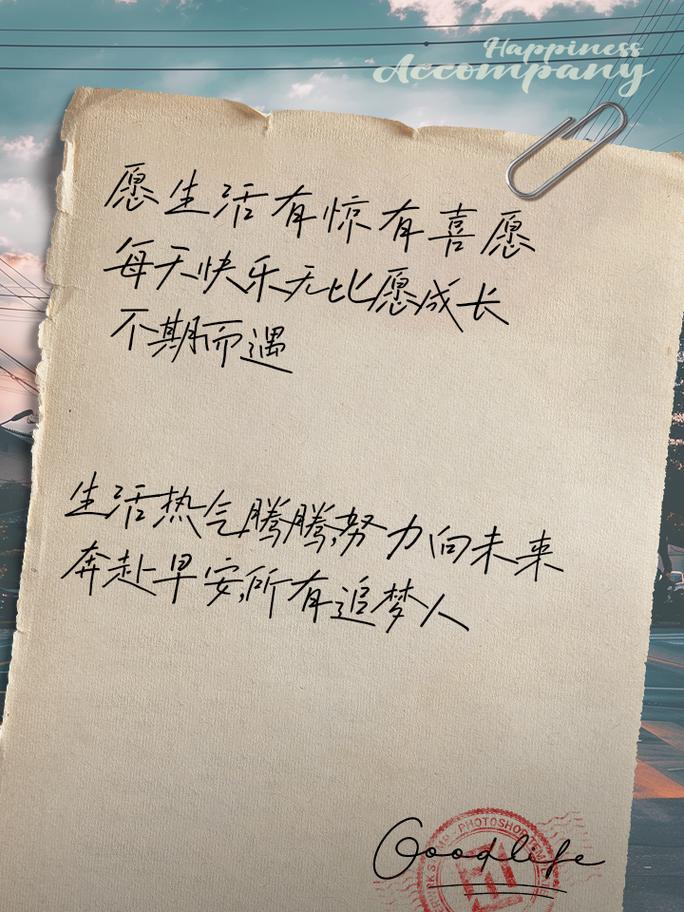 Happiness
Accompany
愿生活有惊有喜愿
每天快乐无比愿成长
不期而遇
生活热气腾腾,努力向未来
奔赴早安,所有追梦人
Goodlife